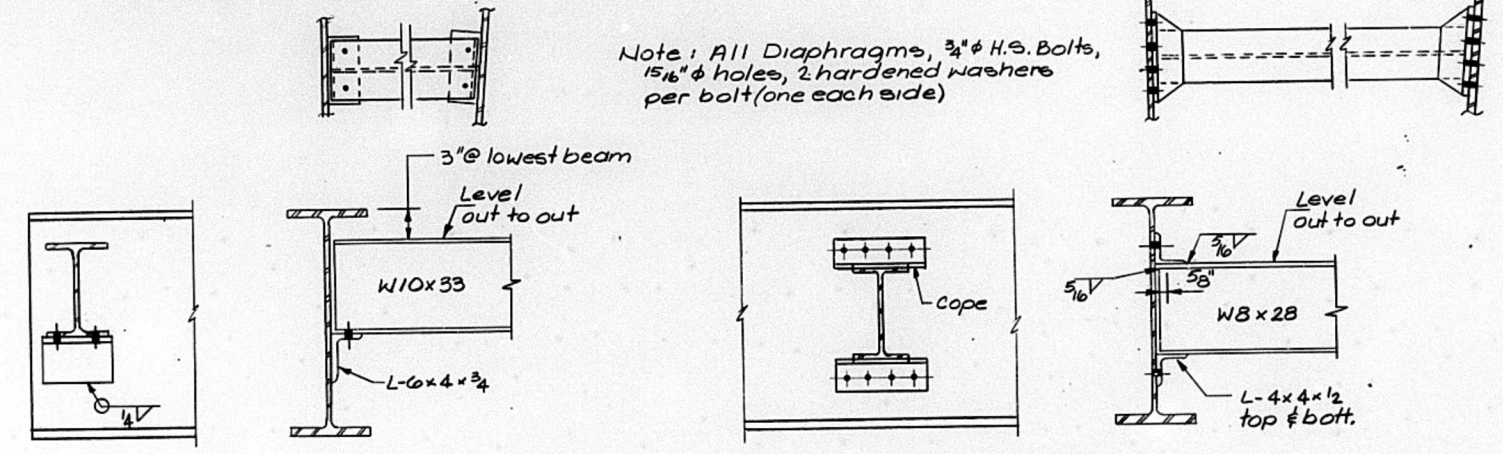 Note: All Diaphragms, ¾"ϕ H.S. Bolts,
15/16"ϕ holes, 2 hardened washers
per bolt (one each side)
3"@ lowest beam
Level
out to out
W10x33
L-6x4x¾
¼
cope
Level
out to out
5/16
5/16
5/8"
W8x28
L-4x4x½
top & bott.